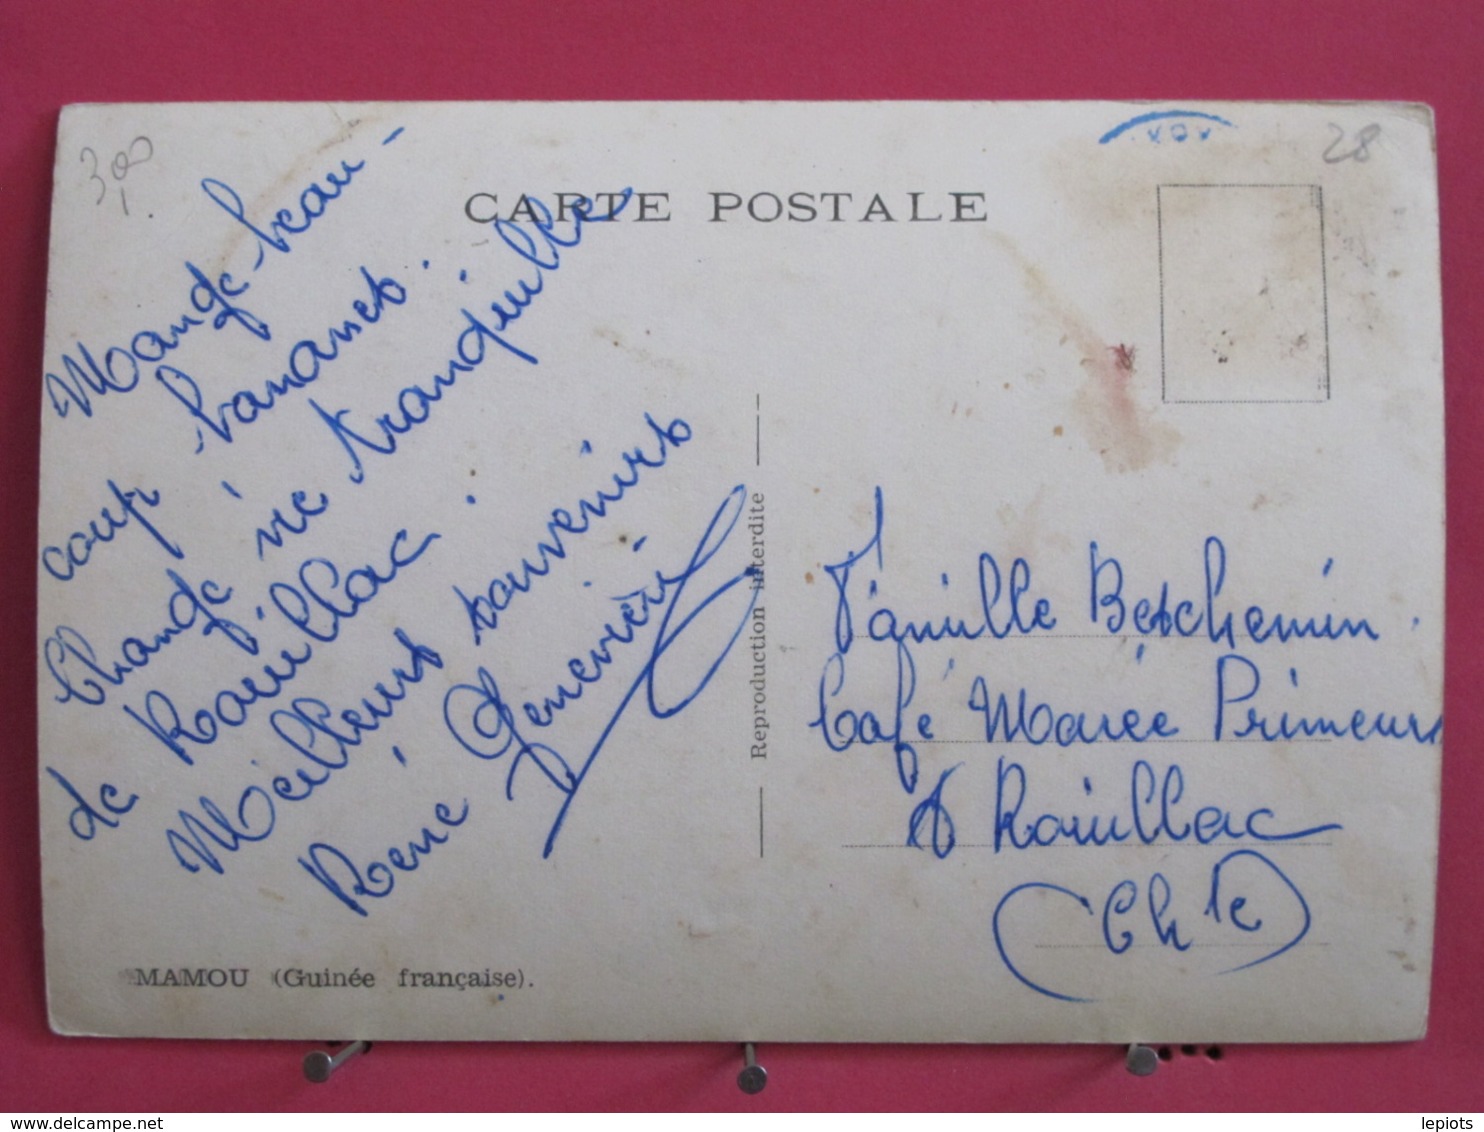 3,00
28
CARTE POSTALE
Mange beau-
coup bananes.
Change vie tranquille
de Rouillac.
Meilleurs souvenirs
René Geneviève
Reproduction interdite
Famille Beschemin.
Café Marée Primeurs
à Rouillac
(Ch te)
MAMOU (Guinée française).
lepiots